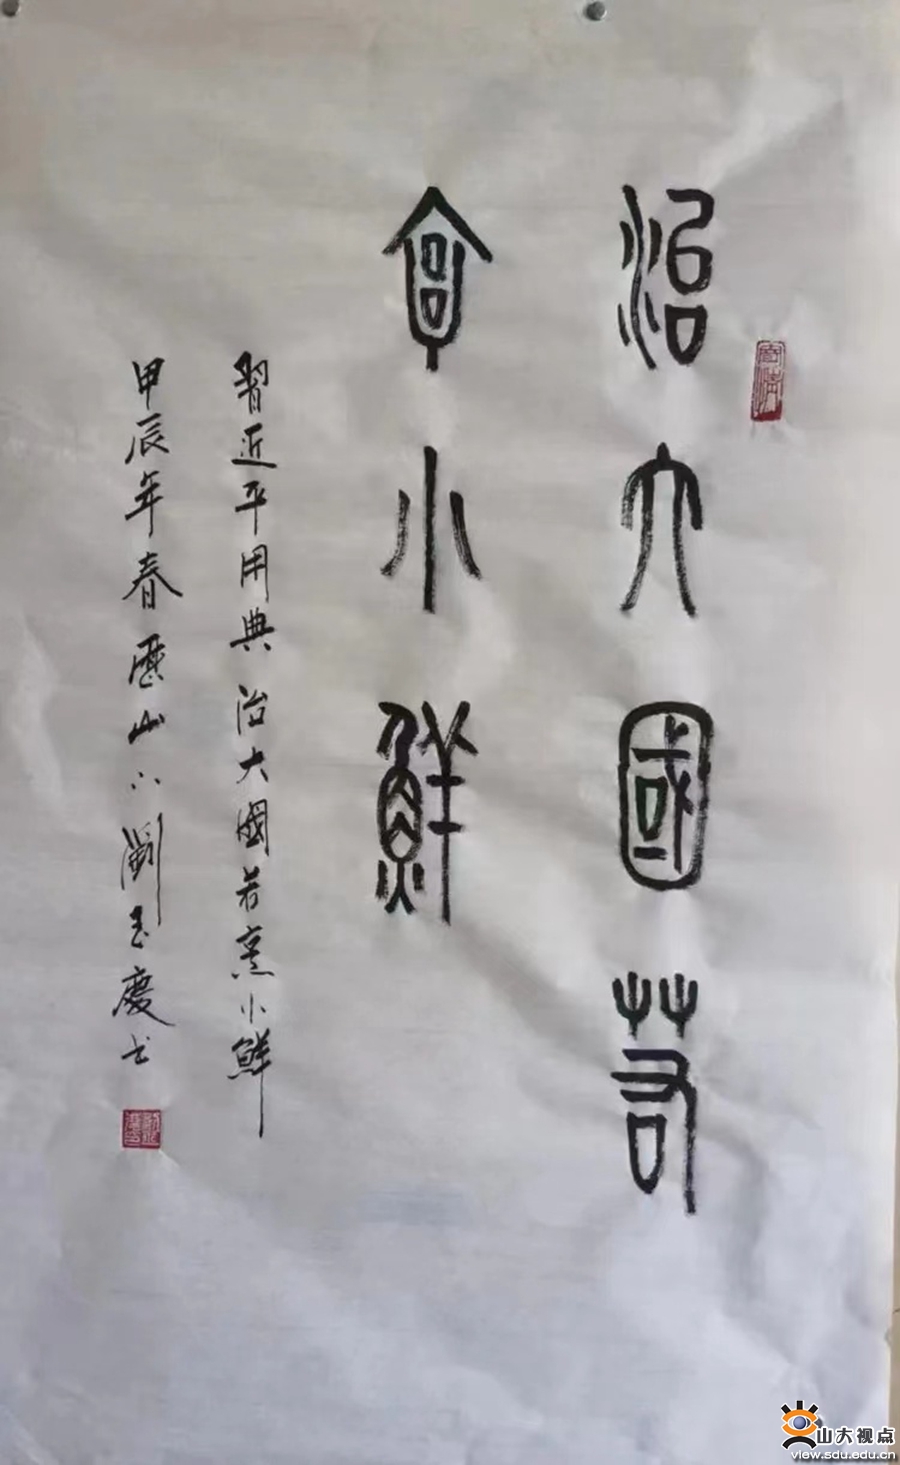 治大國若
亯小鮮
習近平用典 治大國若烹小鮮
甲辰年春歷山下闞玉慶书
山大视点
view.sdu.edu.cn